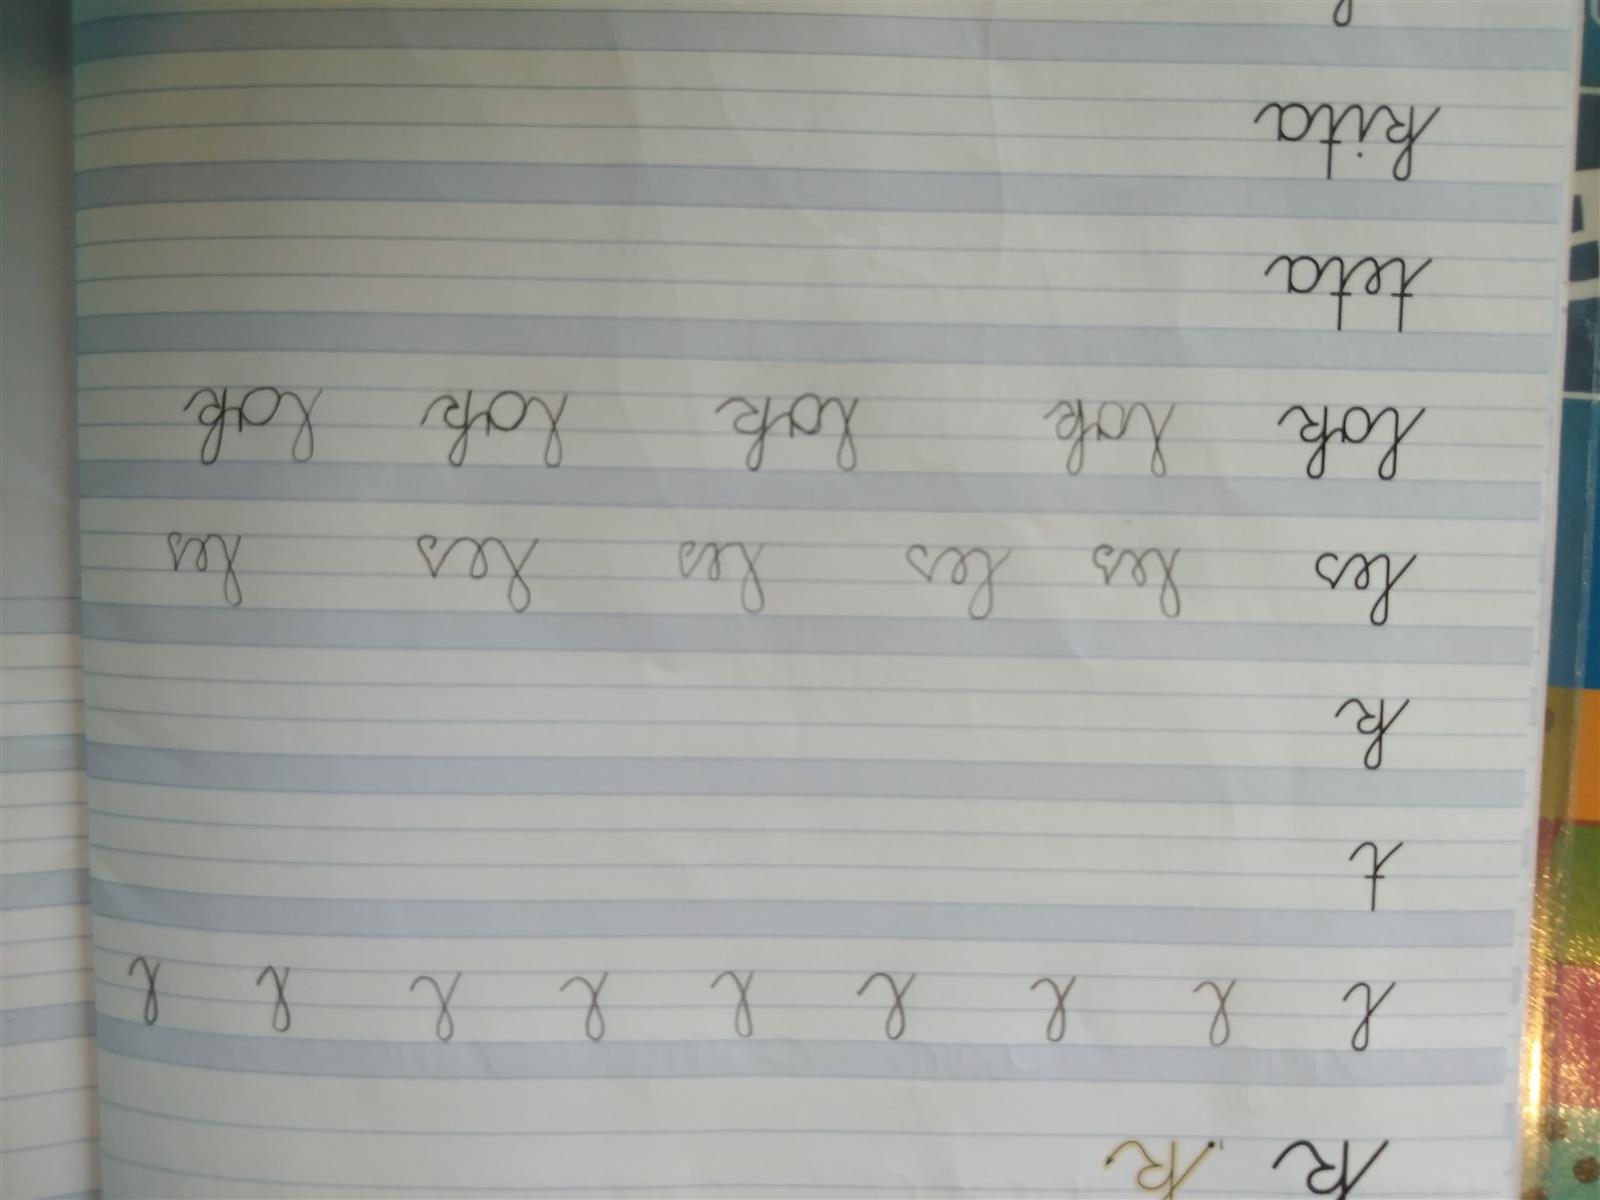 k k
l l l l l l l l l
t
k
les les les les les les
lok lok lok lok lok
teta
kita